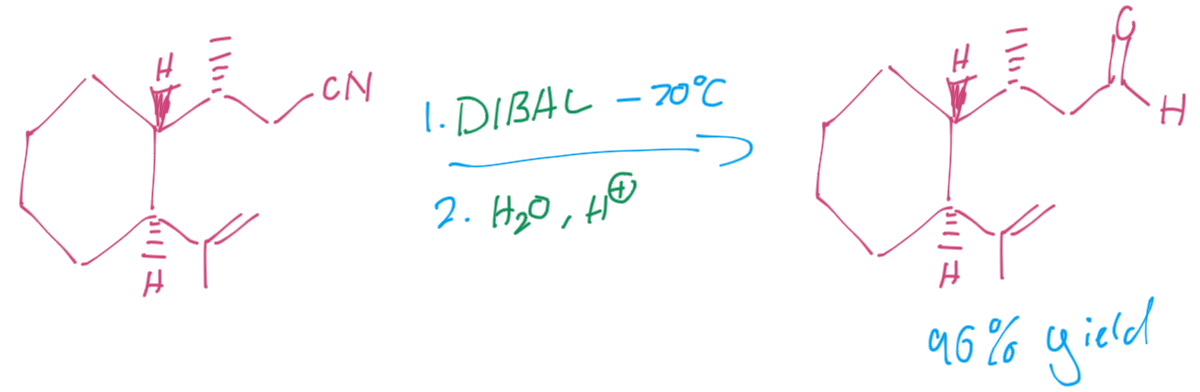 H
CN
H
1. DIBAL -70°C
2. H₂O, H⊕
H
O
H
H
96% yield